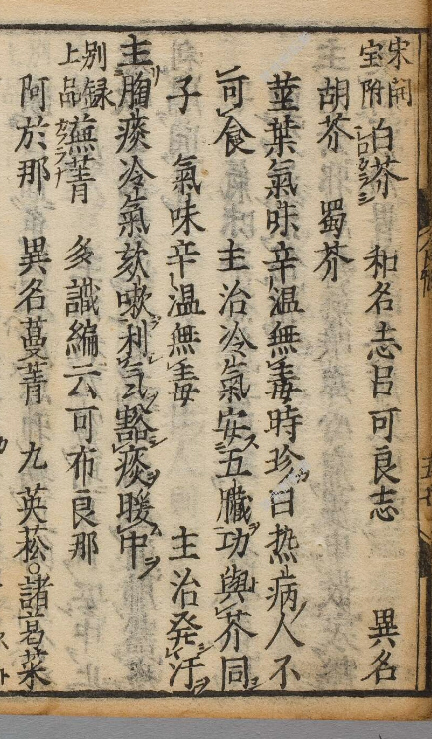 宋開宝附 白芥 シロカラシ 和名志呂可良志 異名
胡芥 蜀芥
莖葉氣味辛温無毒時珍曰热病人不
可食 主治冷氣安五臓功與芥同
子 氣味辛温無毒 主治発汗
主胸痰冷氣欬嗽利气豁痰暖中
別録上品 蕪菁 カブラナ 多識編云可布良那
阿於那 異名蔓菁 九英菘 諸葛菜